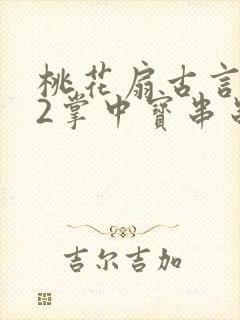 桃花扇古言
2掌中寶串
吉尔吉加